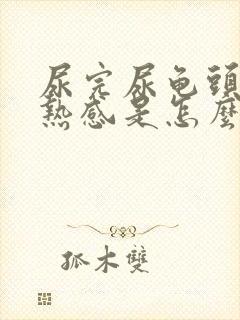 尿完尿龟頭
熱感是怎麼
孤木雙